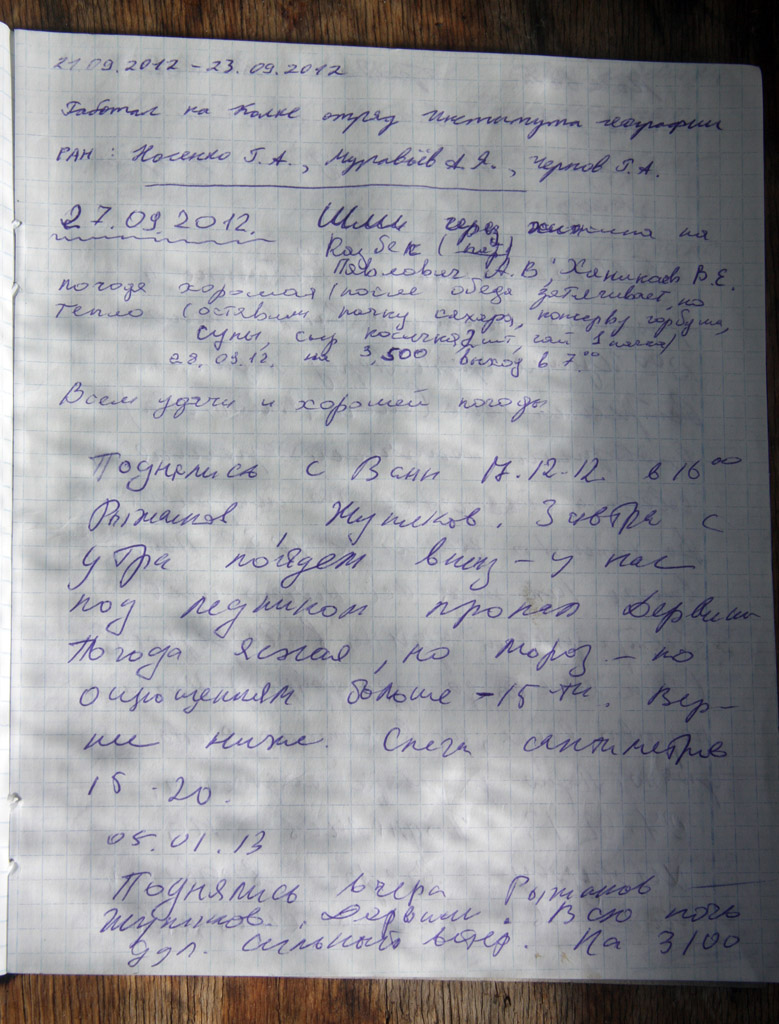 21.09.2012 - 23.09.2012
Работал на Колке отряд Института географии
РАН: Носенко Г.А., Муравьёв А.Я., Чернов Г.А.
27.09.2012. Шли через на
Казбек
Павлович А.В, Ханикаев В.Е.
погода хорошая (после обеда затягивает, но
тепло (оставили пачку сахара, консерву горбуша,
супы, сыр косичка 2 шт, чай 1 пачка)
28.09.12. на 3,500 выход в 7.00
Всем удачи и хорошей погоды
Поднялись с Ванн 17.12.12. в 16 00
Рыжанов, Жупиков. Завтра с
утра пойдем вниз - у нас
под ледником пропал Дервиш
Погода ясная, но мороз - по
ощрощениям больше -15-ти. Вер-
не ниже. Снега сантиметров
15-20.
05.01.13
Поднялись вчера Рыжанов
Жупиков, Дервиш. Всю ночь
дул сильный ветер. На 3100